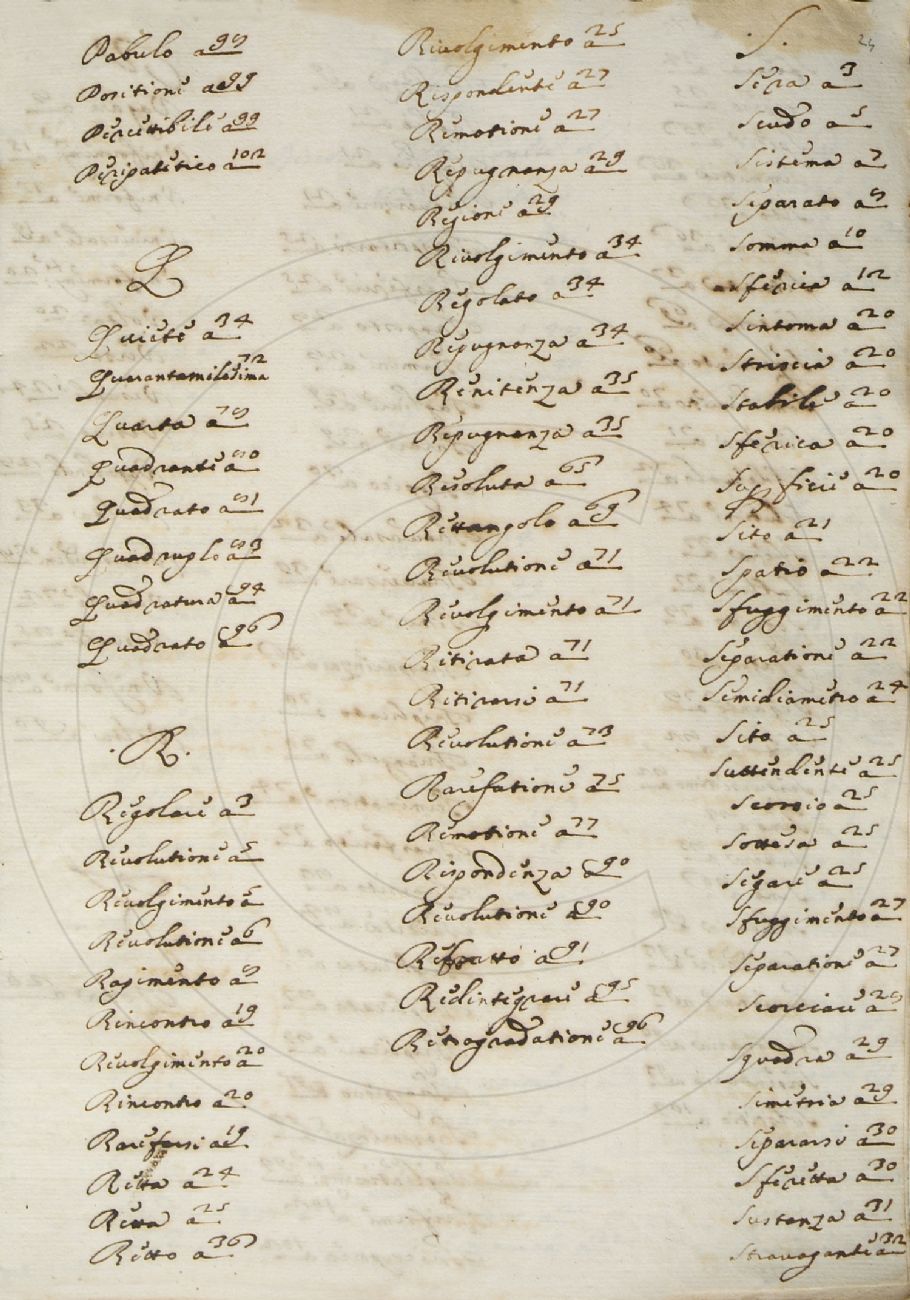 Pabulo a 99
Positione a 99
Percettibile a 99
Peripatetico a 102
Q
Quiete a 34
Quarantamilesima 72
Quarta a 79
Quadrante a 90
Quadrato a 91
Quadruplo a 93
Quadratura a 94
Quadrato a 96
.R.
Regolare a 3
Revolutione a 5
Revolgimento a 5
Revolutione a 6
Rapimento a 9
Rincontro a 19
Revolgimento a 20
Rincontro a 20
Rarefarsi a 19
Retta a 24
Retta a 25
Retto a 36
Rivolgimento a 25
Rispondente a 27
Remotione a 27
Repugnanza a 29
Regione a 29
Rivolgimento a 34
Regolato a 34
Repugnanza a 34
Renitenza a 35
Repugnanza a 35
Resoluta a 65
Rettangolo a 69
Revolutione a 71
Revolgimento a 71
Ritirata a 71
Ritirarsi a 71
Revolutione a 73
Rarefatione a 75
Remotione a 77
Rispondenza a 90
Revolutione a 90
Refratto a 91
Redintegrare a 95
Retrogradatione a 96
.S.
24
Sera a 3
Scudo a 5
Sistema a 7
Separato a 9
Somma a 10
Sferica a 12
Sintoma a 20
Striscia a 20
Stabile a 20
Sferica a 20
Superficie a 20
Sito a 21
Spatio a 22
Sfuggimento a 22
Separatione a 22
Semidiametro a 24
Sito a 25
Suttendente a 25
Scorcio a 25
Sottesa a 25
Segare a 25
Sfuggimento a 27
Separatione a 27
Scorciare a 29
Squadra a 29
Simetria a 29
Separarsi a 30
Sferetta a 30
Sustanza a 31
Stravagante a 32